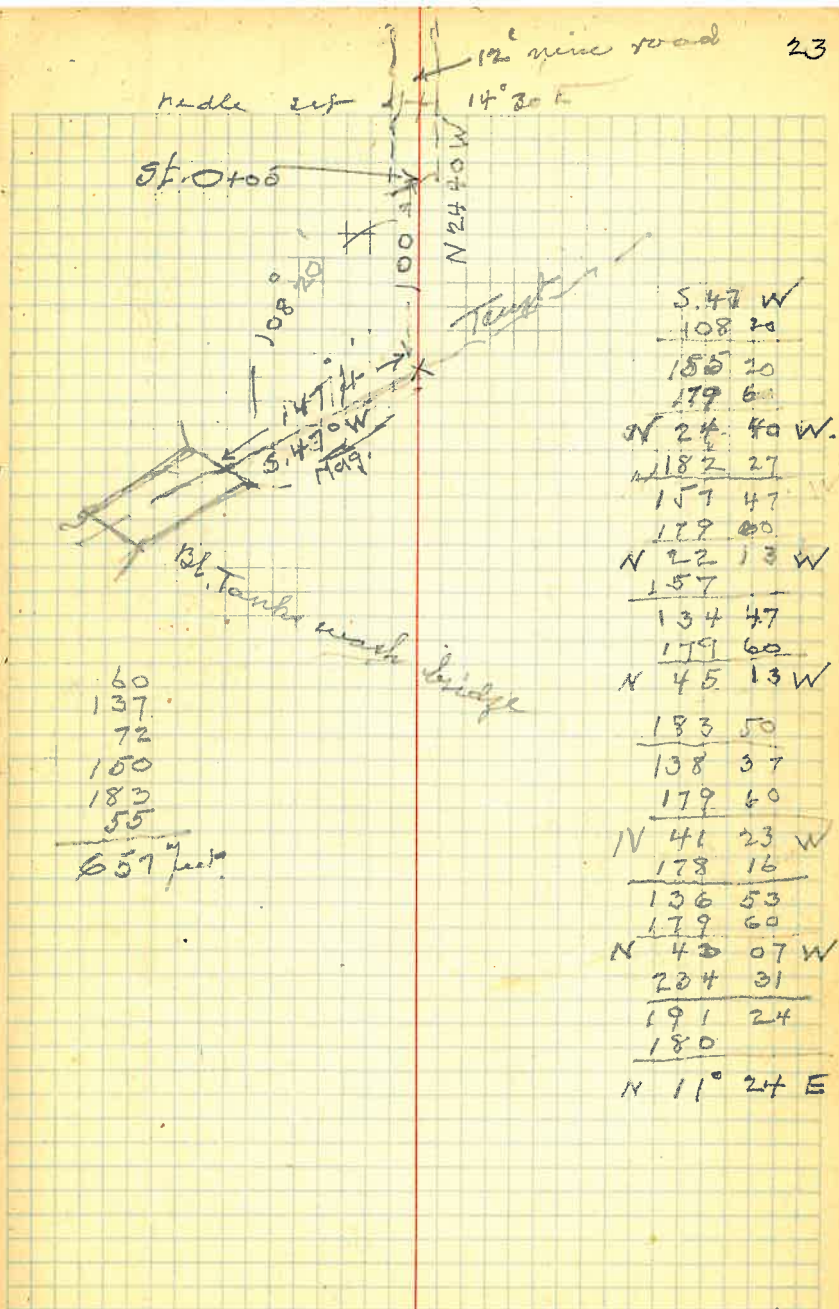 23
12' mine road
needle set 14°30 E
St. 0+00
100 ft
N 24 40 W
108° 20'
Tangt
147 ft
S. 47° W
Mag.
Bl. Tanks wash bridge
60
137
72
150
183
55
657 feet
S. 47 W
108 20
155 20
179 60
N 24 40 W.
182 27
157 47
179 60
N 22 13 W
157
134 47
179 60
N 45 13 W
183 50
138 37
179 60
N 41 23 W
178 16
136 53
179 60
N 43 07 W
234 31
191 24
180
N 11° 24 E